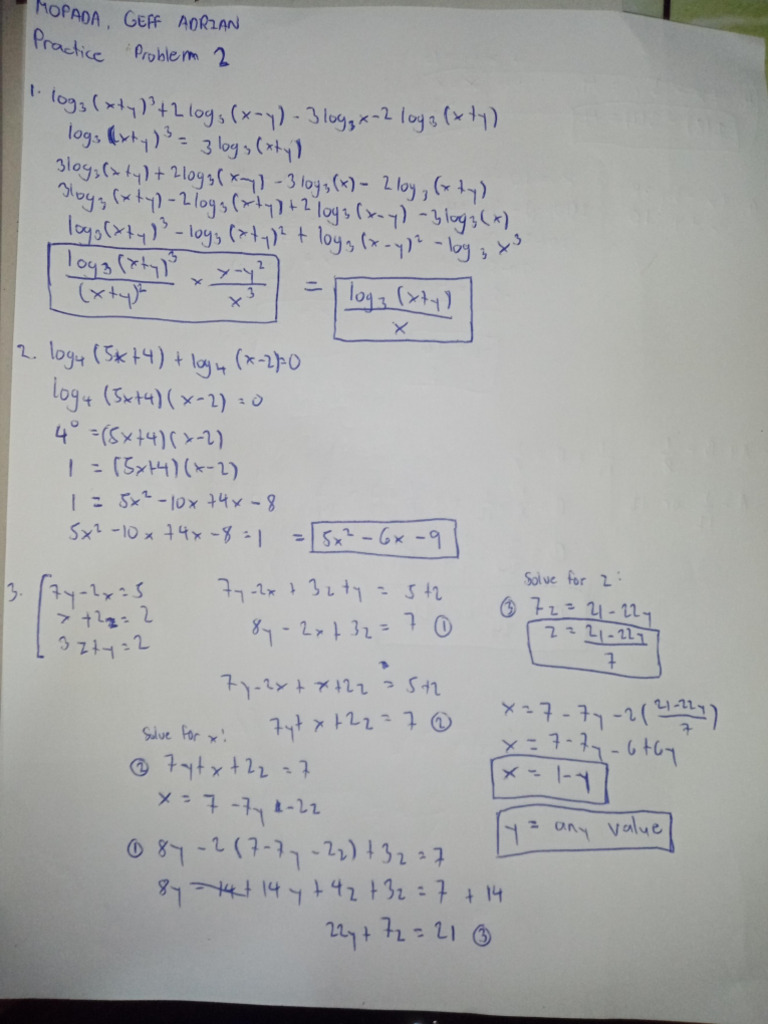 MOPADA, GEFF ADRIAN
Practice Problem 2
1. log₃(x+y)³+2log₃(x-y) - 3log₃x-2 log₃(x+y)
log₃(x+y)³ = 3log₃(x+y)
3log₃(x+y) + 2log₃(x-y) - 3log₃(x) - 2log₃(x+y)
3log₃(x+y) - 2log₃(x+y) + 2log₃(x-y) - 3log₃(x)
log₃(x+y)³ - log₃(x+y)² + log₃(x-y)² - log₃x³
log₃(x+y)³/(x+y)² × x-y²/x³ = log₃(x+y)/x
2. log₄(5x+4) + log₄(x-2)=0
log₄(5x+4)(x-2) = 0
4⁰ = (5x+4)(x-2)
1 = (5x+4)(x-2)
1 = 5x² -10x +4x -8
5x² -10x +4x -8 = 1 = 5x² - 6x - 9
3. 7y-2x=5
x+2z=2
3z+y=2
7y-2x+3z+y = 5+2
8y - 2x+3z = 7 ①
7y-2x+x+2z = 5+2
7y+x+2z = 7 ②
Solve for x:
② 7y+x+2z = 7
x = 7-7y-2z
① 8y - 2(7-7y-2z)+3z = 7
8y -14+14y+4z+3z = 7 + 14
22y+7z = 21 ③
Solve for z:
③ 7z = 21-22y
z = 21-22y/7
x = 7-7y-2(21-22y/7)
x = 7-7y-6+6y
x = 1-y
y = any value